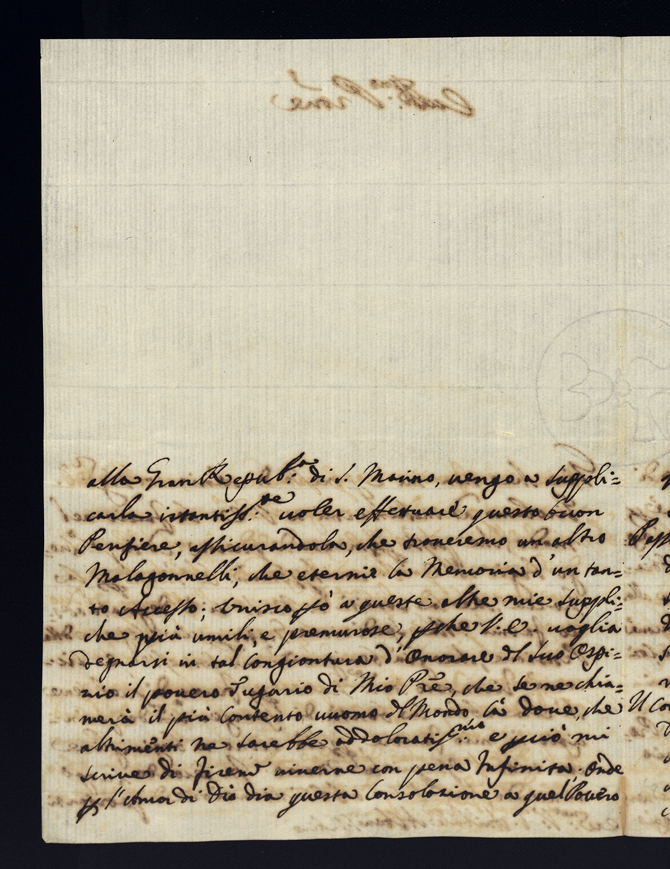 alla Gran Repub:ca di S. Marino, vengo a suppli=
carla istantiss:te voler effettuare questo buon
Pensiere, assicurandola, che troneremo un altro
Malagonnelli, che eterni la Memoria d'un tan=
to Accesso; Unisco però a queste altre mie suppli=
che più umili, e premurose, perche V.E. voglia
degnarsi in tal congiontura d'Onorare del suo Ospi=
zio il povero Tugurio di Mio Pre, che se ne chia=
merà il più Contento uuomo del Mondo, là dove, che
altrimenti ne sarebbe addoloratissimo e perciò mi
scrive di viverne con pena Infinita. Onde
per l'Amor di Dio dia questa Consolazione a quel Povero